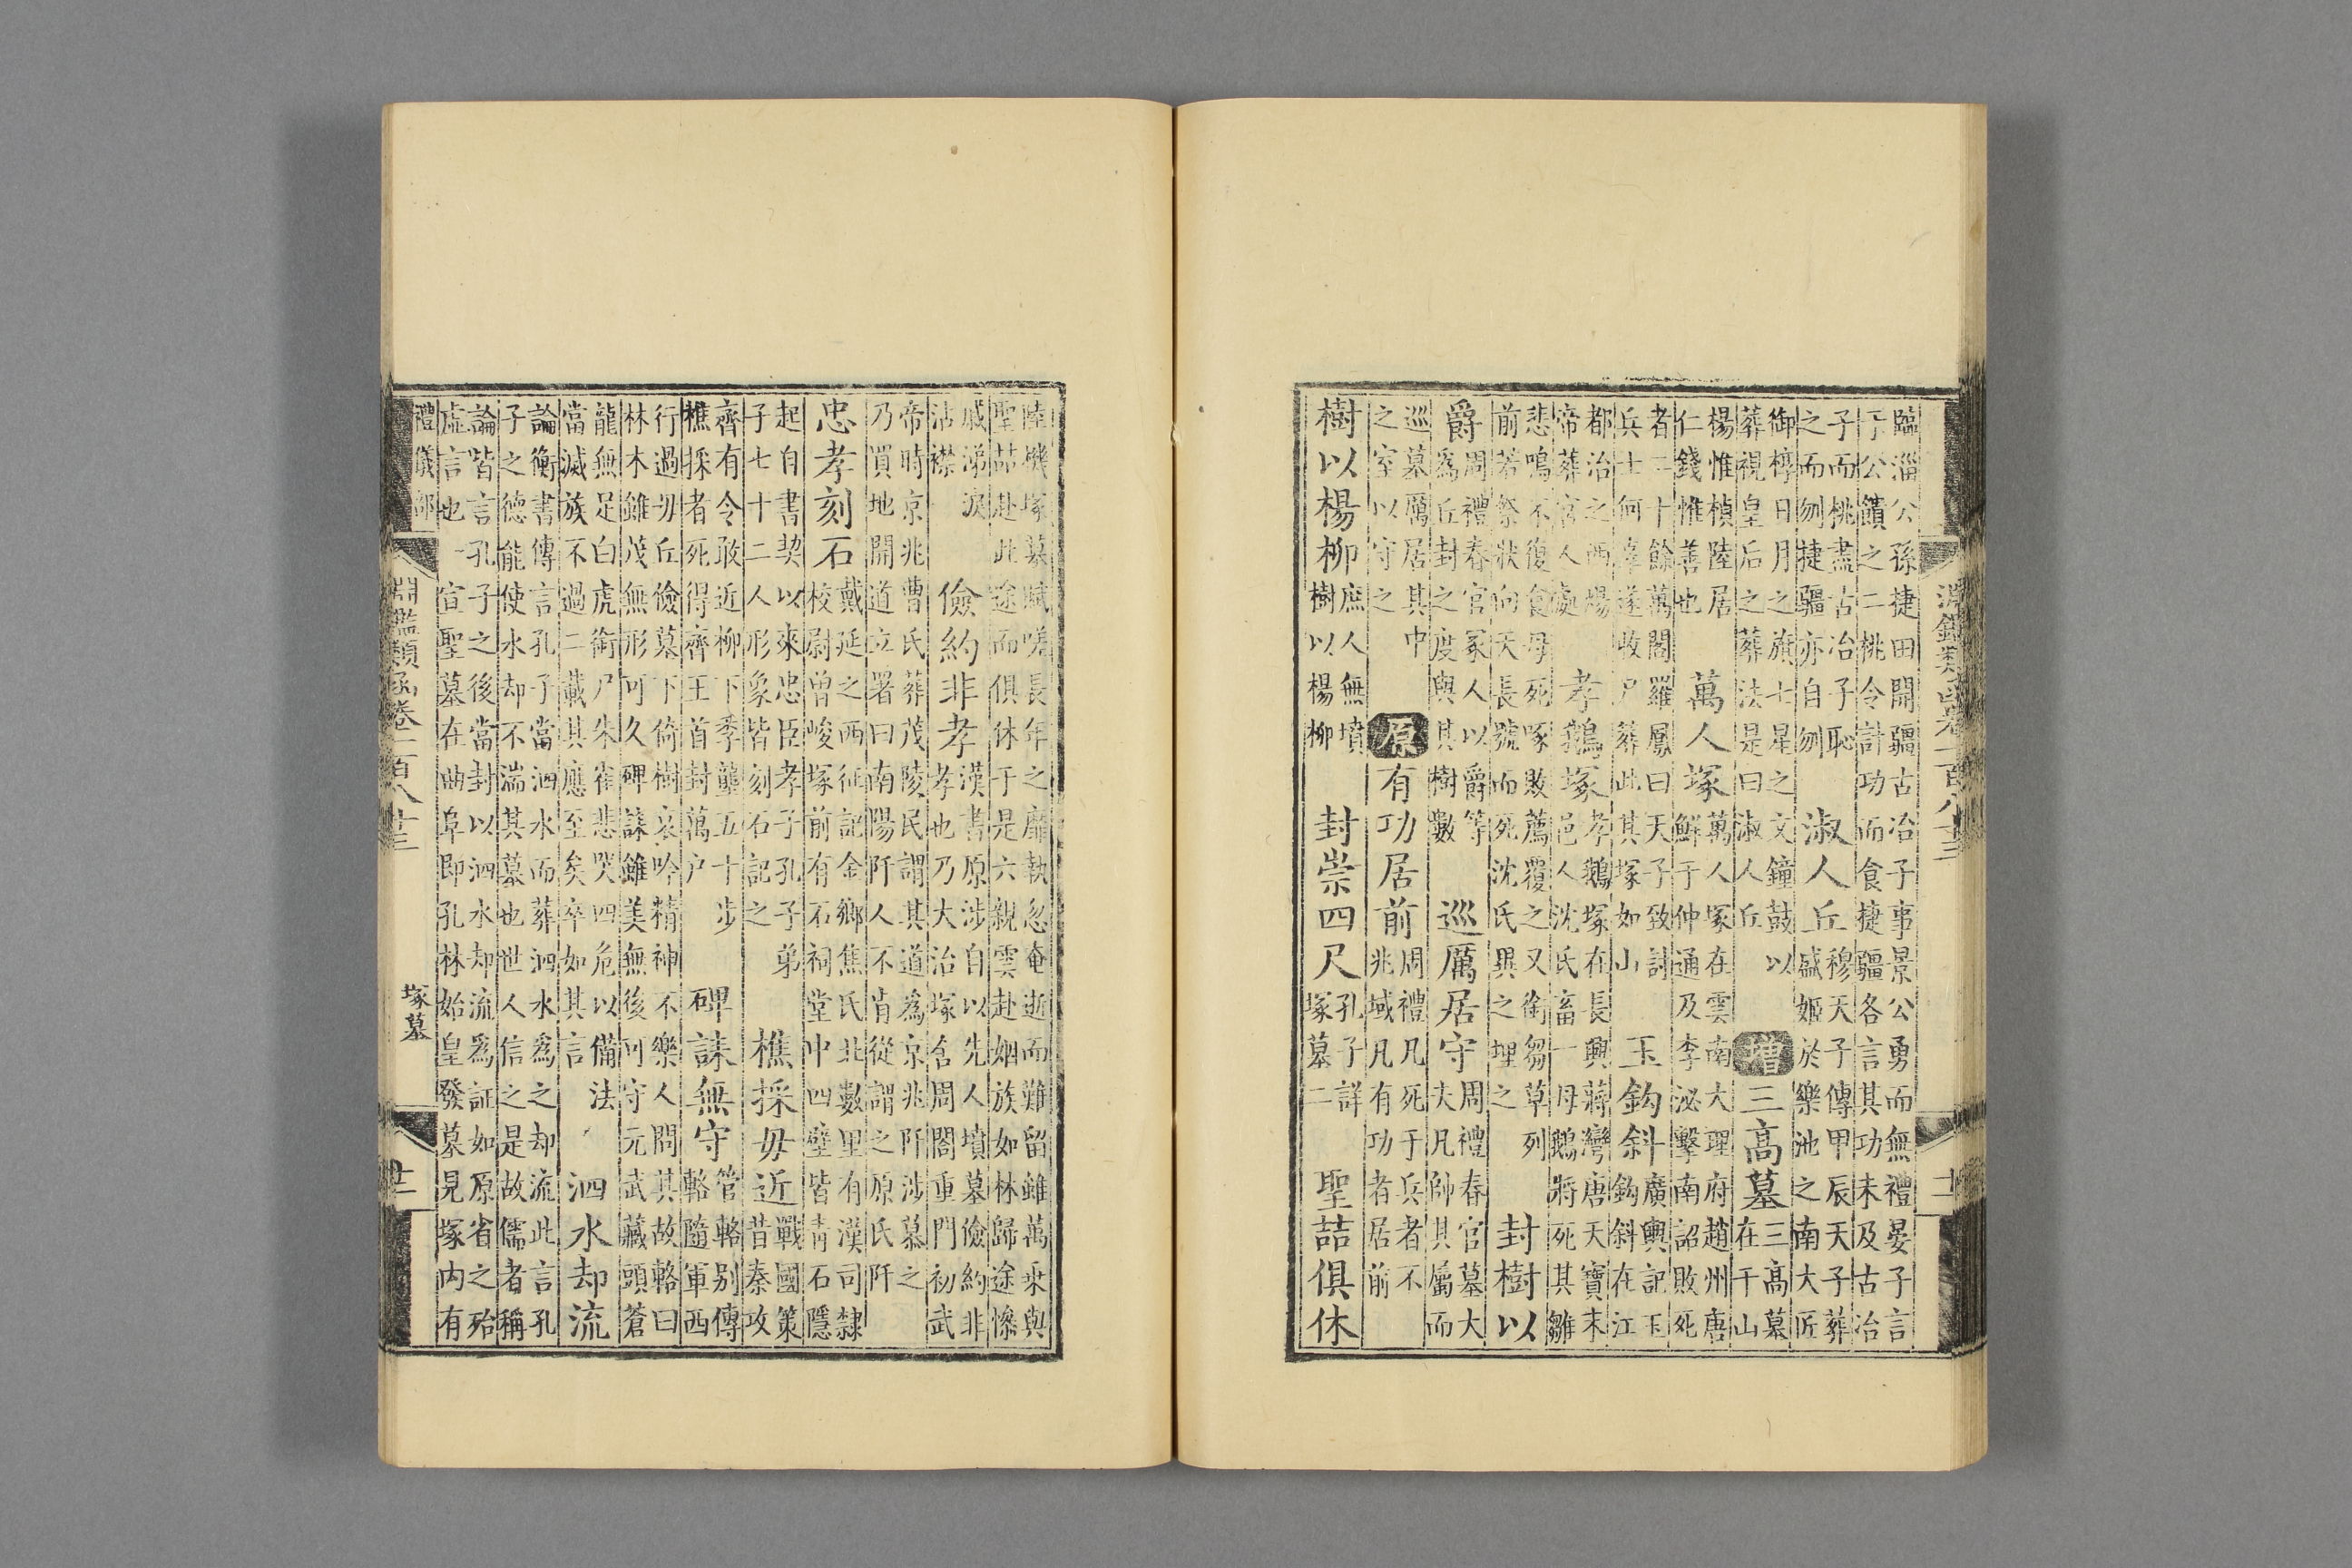 臨淄公孫捷田開疆古冶子事景公勇而無禮晏子言
于公饋之二桃令計功而食捷疆各言其功未及古冶
子而桃盡古冶子恥
之而刎捷疆亦自刎
淑人丘
穆天子傳甲辰天子葬
盛姬於樂池之南大匠
御椁日月之旗七星之文鐘鼓以
葬視皇后之葬法是曰淑人丘
增 三高墓
三高墓
在干山
楊惟楨陸居
仁錢惟善也
萬人塚
萬人塚在雲南大理府趙州唐
鮮于仲通及李泌擊南詔敗死
者二十餘萬閣羅鳳曰天子致討
兵士何辜遂收尸葬此其塚如山
玉鈎斜
廣輿記玉
鈎斜在江
都治之西煬
帝葬宮人處
孝鵝塚
孝鵝塚在長興蔣灣唐天寶末
邑人沈氏畜一母鵝將死其雛
悲鳴不復食母死啄敗薦覆之又銜芻草列
前若祭狀向天長號而死沈氏異之埋之
封樹以
爵
周禮春官冢人以爵等
為丘封之度與其樹數
巡厲居守
周禮春官墓大
夫凡帥其屬而
巡墓厲居其中
之室以守之
原 有功居前
周禮凡死于兵者不
兆域凡有功者居前
樹以楊柳
庶人無墳
樹以楊柳
封崇四尺
孔子詳
塚墓二
聖喆俱休
陸機塚墓賦嗟長年之靡執忽奄逝而難留雖萬乘與
聖喆赴此途而俱休于是六親雲赴姻族如林歸途慘
戚涕淚
沾襟
儉約非孝
漢書原涉自以先人墳墓儉約非
孝也乃大治塚舍周閣重門初武
帝時京兆曹氏葬茂陵民謂其道為京兆阡涉慕之
乃買地開道立署曰南陽阡人不肯從謂之原氏阡
忠孝刻石
戴延之西征記金鄉焦氏北數里有漢司隸
校尉曾峻塚前有石祠堂中四壁皆青石隱
起自書契以來忠臣孝子孔子弟
子七十二人形象皆刻石記之
樵採毋近
戰國策
昔秦攻
齊有令敢近柳下季壟五十步
樵採者死得齊王首封萬户
碑誄無守
管輅别傳
輅隨軍西
行過毌丘儉墓下倚樹哀吟精神不樂人問其故輅曰
林木雖茂無形可久碑誄雖美無後可守元武藏頭蒼
龍無足白虎銜尸朱雀悲哭四危以備法
當滅族不過二載其應至矣卒如其言
泗水却流
論衡書傳言孔子當泗水而葬泗水為之却流此言孔
子之德能使水却不湍其墓也世人信之是故儒者稱
論皆言孔子之後當封以泗水却流為証如原省之殆
虛言也 宣聖墓在曲阜即孔林始皇發墓見塚内有
禮儀部
淵鑑類函卷一百八十三
塚墓